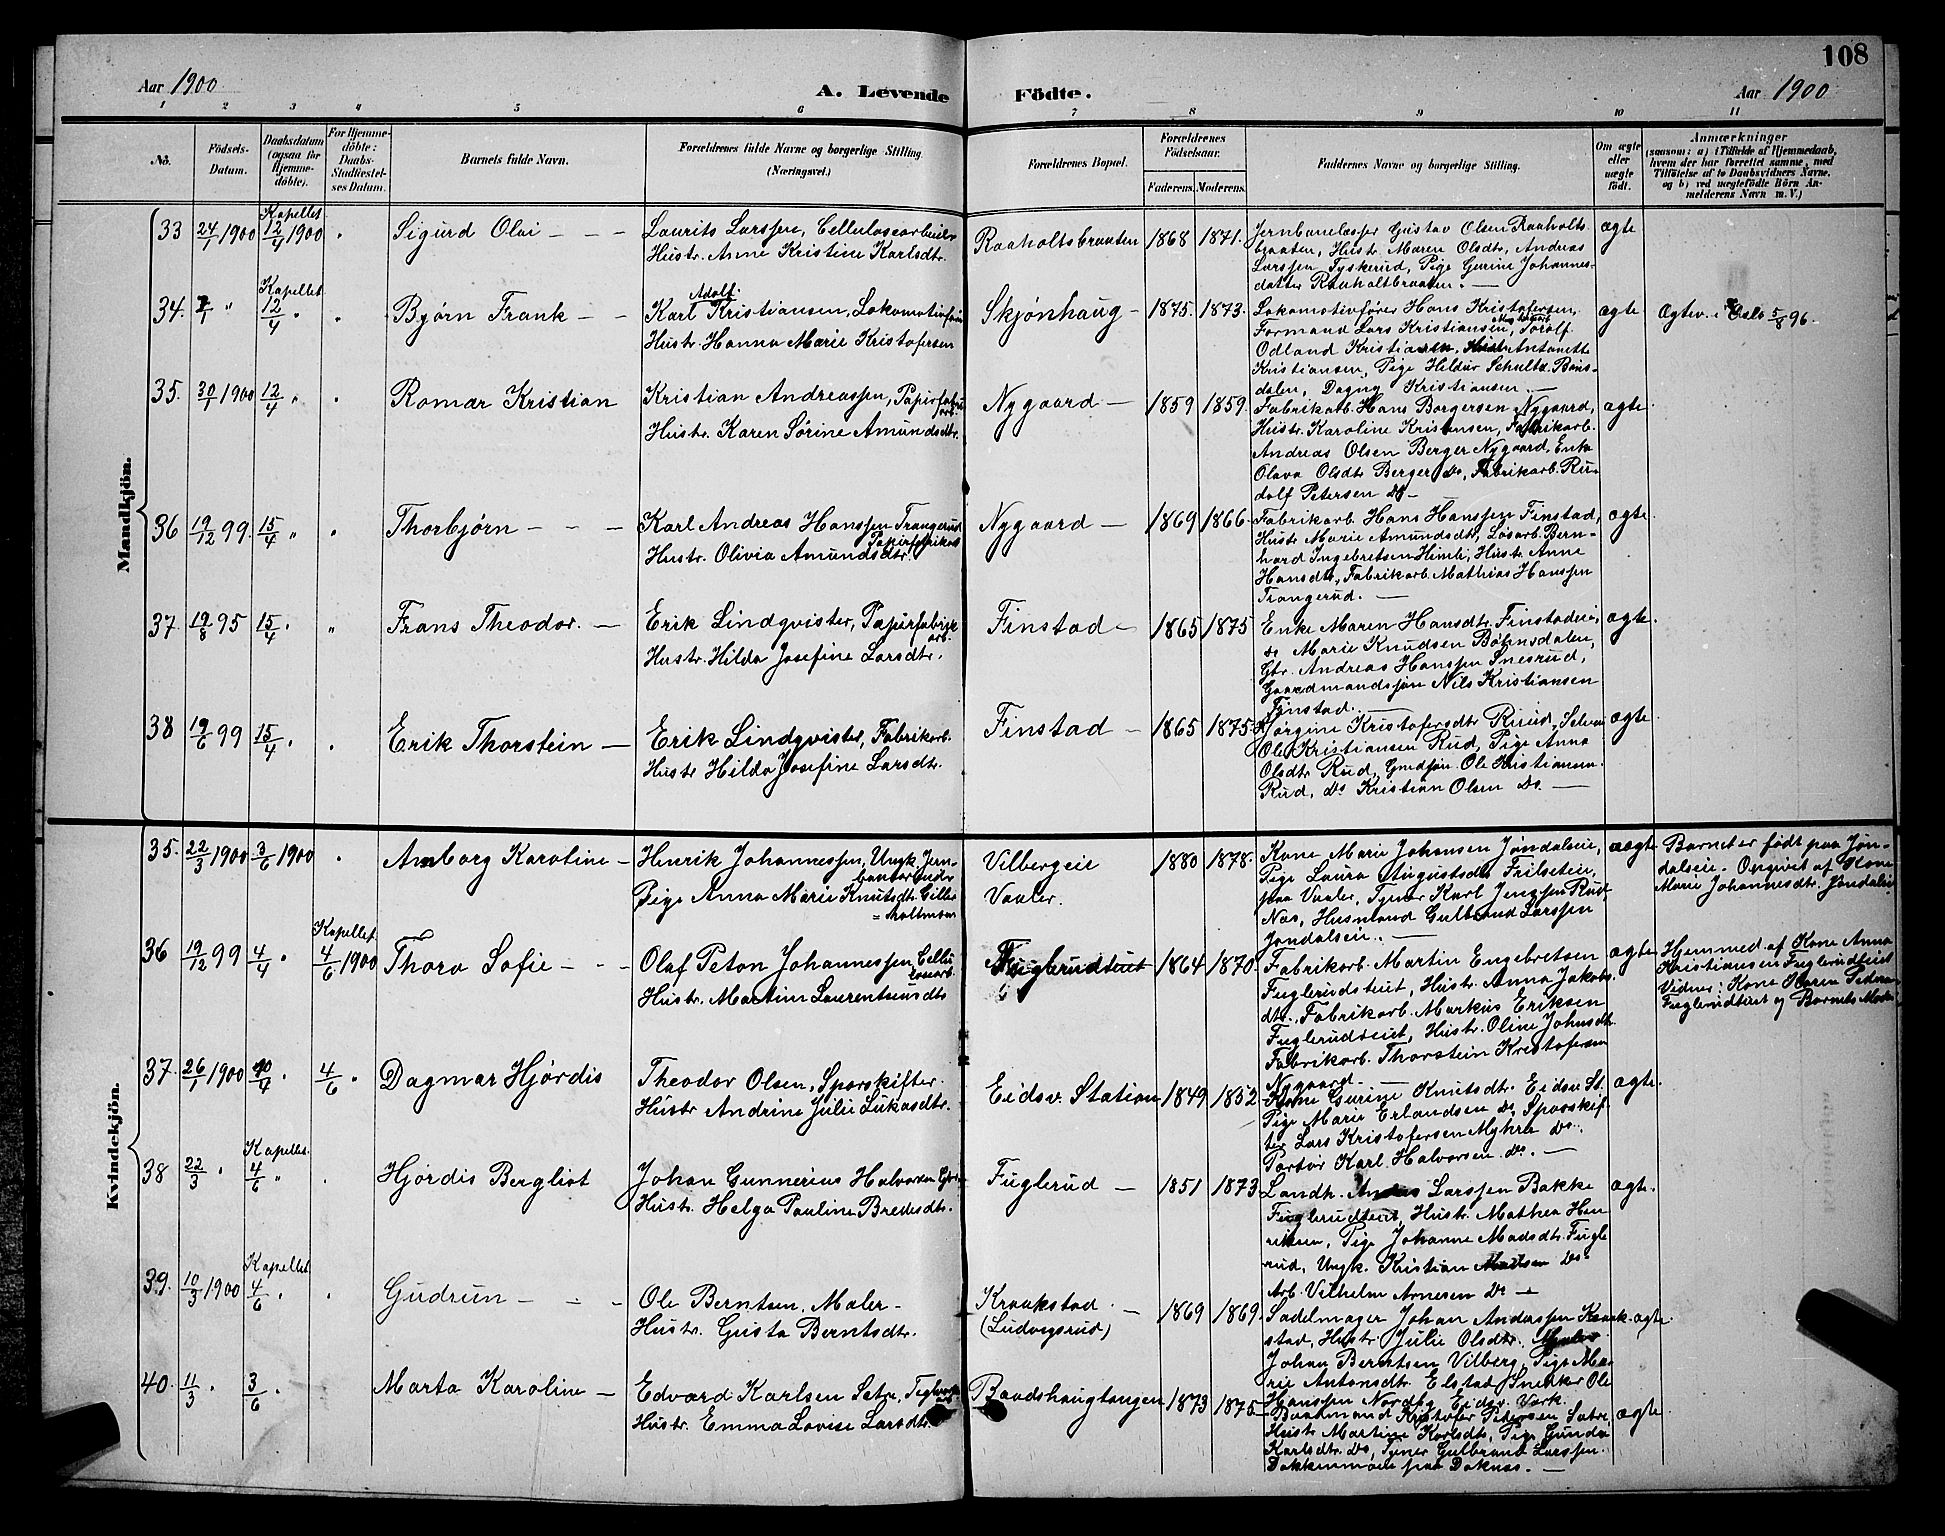 108
Aar 1900
A. Levende
Födte.
Aar 1900
1 2 3 4 5 6 7 8 9 10 11
No.
Födsels-
Datum.
Daabsdatum
(ogsaa for
Hjemme-
döbte).
For Hjemme-
döbte:
Daabs-
Stadfæstel-
ses Datum.
Barnets fulde Navn.
Forældrenes fulde Navne og borgerlige Stilling
(Næringsvei.)
Forældrenes Bopæl.
Forældrenes
Födselsaar.
Faderens.
Moderens.
Faddernes Navne og borgerlige Stilling.
Om ægte
eller
uægte
födt.
Anmærkninger
(saasom: a) i Tilfælde af Hjemmedaab,
hvem der har forrettet samme, med
Tilföielse af to Daabsvidners Navne,
og b) ved uægtefödte Börn An-
melderens Navn m. V.)
Mandkjön.
33 24/1 1900 Kapellet 12/4 1900 "
Sigurd Olai - - -
Laurits Larssen, Cellulosearbeider
Hustr. Anne Kristine Karlsdtr.
Raaholtsbraaten 1868 1871.
Jernbanelægger Gustav Olsen Raaholts
braaten, Hustr Maren Olsdtr, Andreas
Larssen Tyskerud, Pige Gurine Johannes-
datter Raaholtbraaten. -
ægte
34. 7/1 " Kapellet 12/4 " "
Bjørn Frank - -
Adolf
Karl Kristiansen, Lokomotivfører
Hustr. Hanna Marie Kristofersen
Skjønhaug - 1875. 1873.
Lokomotivfører Hans Kristofersen,
Formand Lars Kristiansen, Torolf
Odland Kristiansen, Antonette
Kristiansen, Pige Hildur Schultz Bøns-
dalen, Dagny Kristiansen. -
ægte
Ægtev. i Oslo 5/8 96.
35. 30/1 1900 12/4 " "
Romar Kristian
Kristian Andreassen, Papirfabrik
arb.
Hustr. Karen Sørine Amundsdtr.
Nygaard - 1859 1859.
Fabrikarb. Hans Borgersen Nygaard,
Hustr. Karoline Kristensen, Fabrikarb.
Andreas Olsen Berger Nygaard, Enke
Olava Olsdtr Berger Do, Fabrikarb. Ru-
dolf Petersen Do -
ægte.
36 19/12 99. 15/4 " "
Thorbjørn - - -
Karl Andreas Hanssen Trangerud
Papirfabrikarb
Hustr. Olivia Amundsdtr.
Nygaard - 1869 1866.
Fabrikarb. Hans Hanssen Finstad,
Hustr Marie Amundsdtr, Løsarb. Bern-
hard Ingebretsen Himle, Hustr. Anne
Hansdtr, Fabrikarb. Mathias Hanssen
Trangerud. -
ægte.
37. 19/8 95 15/4 " "
Frans Theodor. -
Erik Lindqvister, Papirfabrik
arb.
Hustr. Hilda Josefine Larsdtr.
Finstad - 1865 1875
Enke Maren Hansdtr. Finstadeie,
Do Marie Knudsen Bøhnsdalen,
Gbr. Andreas Hanssen Snesrud,
Gaardmandssøn Nils Kristiansen
Finstad. -
ægte.
38 19/6 99 15/4 " "
Erik Thorstein -
Erik Lindqvister, Fabrikarb.
Hustr Hilda Josefine Larsdtr.
Finstad - 1865 1875
Jørgine Kristofersdtr Ruud,
Ole Kristiansen Rud, Pige Anna
Olsdtr Rud, Gmdsøn Ole Kristiansen
Rud, Do Kristian Olsen Do. -
ægte.
Kvindekjön.
35. 22/3 1900 3/6 1900 "
Amborg Karoline -
Henrik Johannessen, Ungk. Jern-
banearbeider
Pige Anna Marie Knutsdtr.
Vilbergeie
Vaaler. 1880 1878.
Kone Marie Johansen Jøndalseie,
Pige Laura Augustsdtr Frilseteie,
paa Vaaler, Tjener Karl Jenssen Rud,
Næs, Husmand Gulbrand Larssen
Jøndalseie. -
uægte
Barnet er født paa Jøn-
dalseie. Opgivet af Kone
Marie Johannesdtr. Jøndalseie
36 19/12 99 4/4 " Kapellet 4/6 1900
Thora Sofie - -
Olaf Peton Johannessen Cellu
losearb.
Hustr. Martine Laurentsiusdtr
Fuglerudteiet 1864 1870.
Fabrikarb. Martin Engebretsen
Fuglerudsteiet, Hustr. Anna Jakobs
dtr., Fabrikarb. Markus Eriksen
Fuglerudteiet, Hustr. Oline Johnsdtr.
Fabrikarb. Thorstein Kristofersen
Nygaard. -
ægte.
Hjemmed. af Kone Anna
Kristiansen Fuglerudteiet
Vidner: Kone Maren Pedersen
Fuglerudteiet og Barnets Moder
37. 26/1 1900 " 4/6 "
Dagmar Hjørdis
Theodor Olsen, Sporskifter.
Hustr Andrine Julie Lukasdtr.
Eidsv. Station 1849 1852
Kone Gurine Knutsdtr. Eidsv. St.
Pige Marie Erlandsen Do, Sporskif-
ter Lars Kristofersen Myhre Do.
Portør Karl Halvorsen. Do. -
ægte.
38 22/3 " Kapellet 4/6 " "
Hjørdis Bergliot
Johan Gunnerius Halvorsen Gbr.
Hustr. Helga Pauline Bredesdtr.
Fuglerud - 1851 1873
Landh. Larssen Bakke
Fuglerudteiet, Hustr. Mathea Hen
riksen, Pige Johanne Madsdtr. Fugle
rud, Ungk. Kristian Madsen Do
Arb. Vilhelm Arnesen Do -
ægte.
39. 10/3 1900 Kapellet 4/6 " "
Gudrun - - -
Ole Berntsen, Maler -
Hustr. Gusta Berntsdtr.
Kraakstad. -
(Ludvigsrud) 1869 1869.
Sadelmager Johan Anderssen Kraak-
stad, Hustr Julie Olsdtr.
Johan Berntsen Vilberg, Pige Ma-
rie Antonsdtr. Elstad, Snekker Ole
Hanssen Nordby Eidsv. Værk.
ægte.
40. 11/3 " 3/6 "
Marta Karoline -
Edvard Karlsen Sætre, Teglværks
arb
Hustr. Emma Lovise Larsdtr.
Baadshaugtangen 1873 1875
Baadmand Kristofer Petersen Sætre,
Hustr Martine Karlsdtr, Pige Gunda
Karlsdtr. Do, Tjener Gulbrand Larssen.
Dokkenmoen paa Doknes. -
ægte.